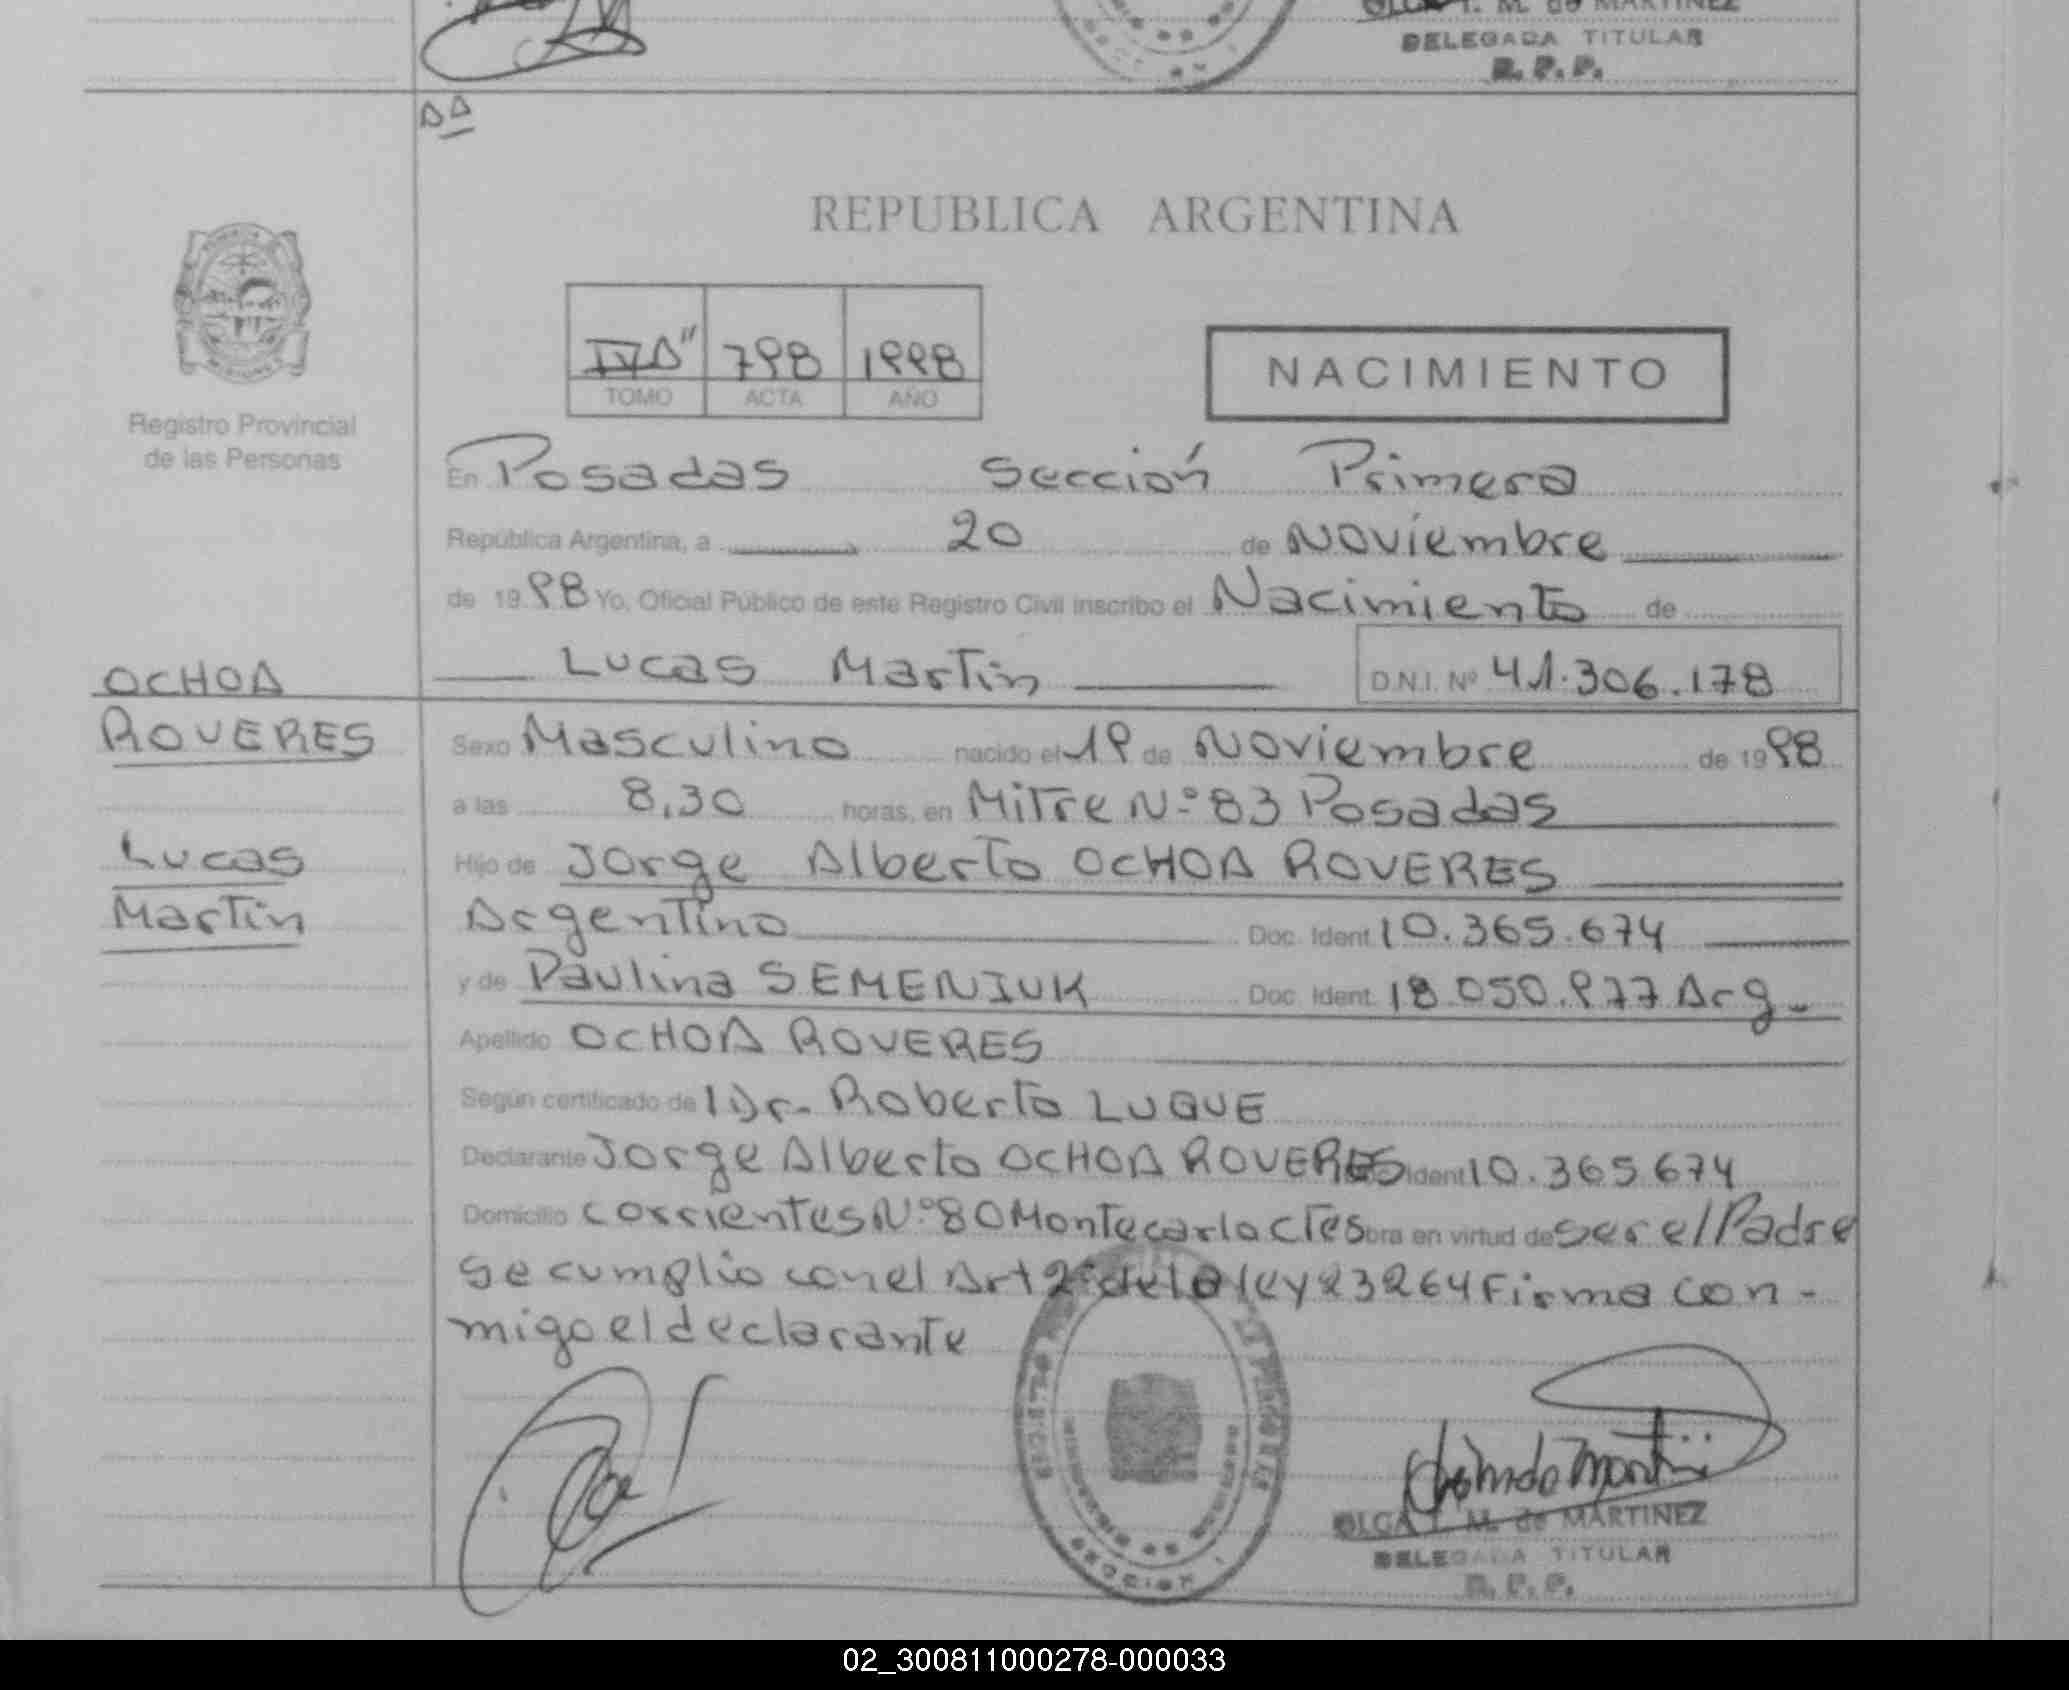 DELEGADA TITULAR
R. P. P.
REPUBLICA ARGENTINA
798 1998
TOMO ACTA AÑO
NACIMIENTO
Registro Provincial
de las Personas
En Posadas Sección Primera
República Argentina, a 20 de Noviembre
de 1998 Yo, Oficial Público de este Registro Civil inscribo el Nacimiento de
Lucas Martin D.N.I. Nº 41.306.178
OCHOA
ROVERES
Lucas
Martin
Sexo Masculino nacido el 19 de Noviembre de 1998
a las 8,30 horas, en Mitre Nº 83 Posadas
Hijo de Jorge Alberto OCHOA ROVERES
Argentino Doc. Ident. 10.365.674
y de Paulina SEMENIUK Doc. Ident. 18.050.977 Arg.
Apellido OCHOA ROVERES
Según certificado de Dr. Roberto LUQUE
Declarante Jorge Alberto OCHOA ROVERES Ident 10.365.674
Domicilio Corrientes Nº 80 Montecarlo Ctes bra en virtud de ser el Padre
se cumplio con el Art 2º de la ley 23264 Firma con-
migo el declarante
OLGA T. M. de MARTINEZ
DELEGADA TITULAR
R. P. P.
02_300811000278-000033